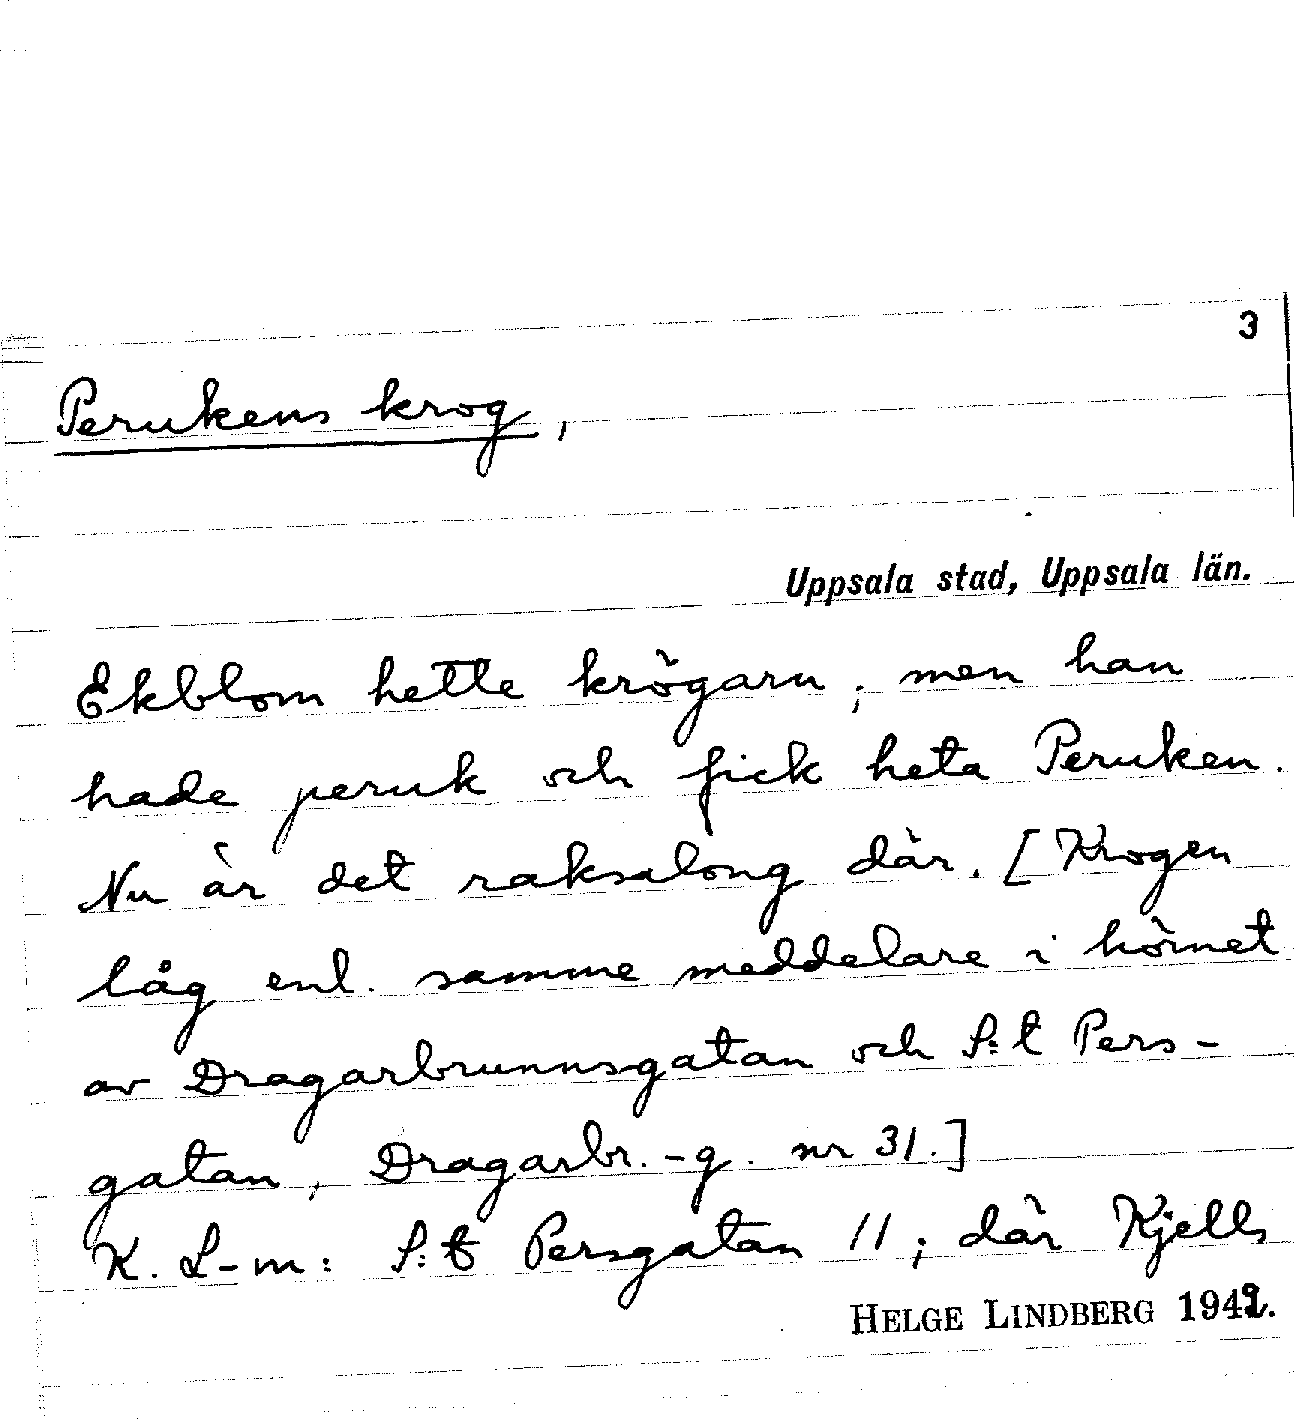 3
Perukens krog,
Uppsala stad, Uppsala län.
Ekblom hette krögarn, men han
hade peruk och fick heta Peruken.
Nu är det raksalong där. [Krogen
låg enl. samme meddelare i hörnet
av Dragarbrunnsgatan och S:t Pers-
gatan, Dragarbr.-g. nr 31.]
K. L-m: S:t Persgatan 11; där Kjells
HELGE LINDBERG